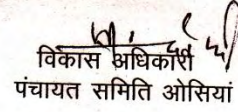 विकास अधिकारी
पंचायत समिति ओसियां